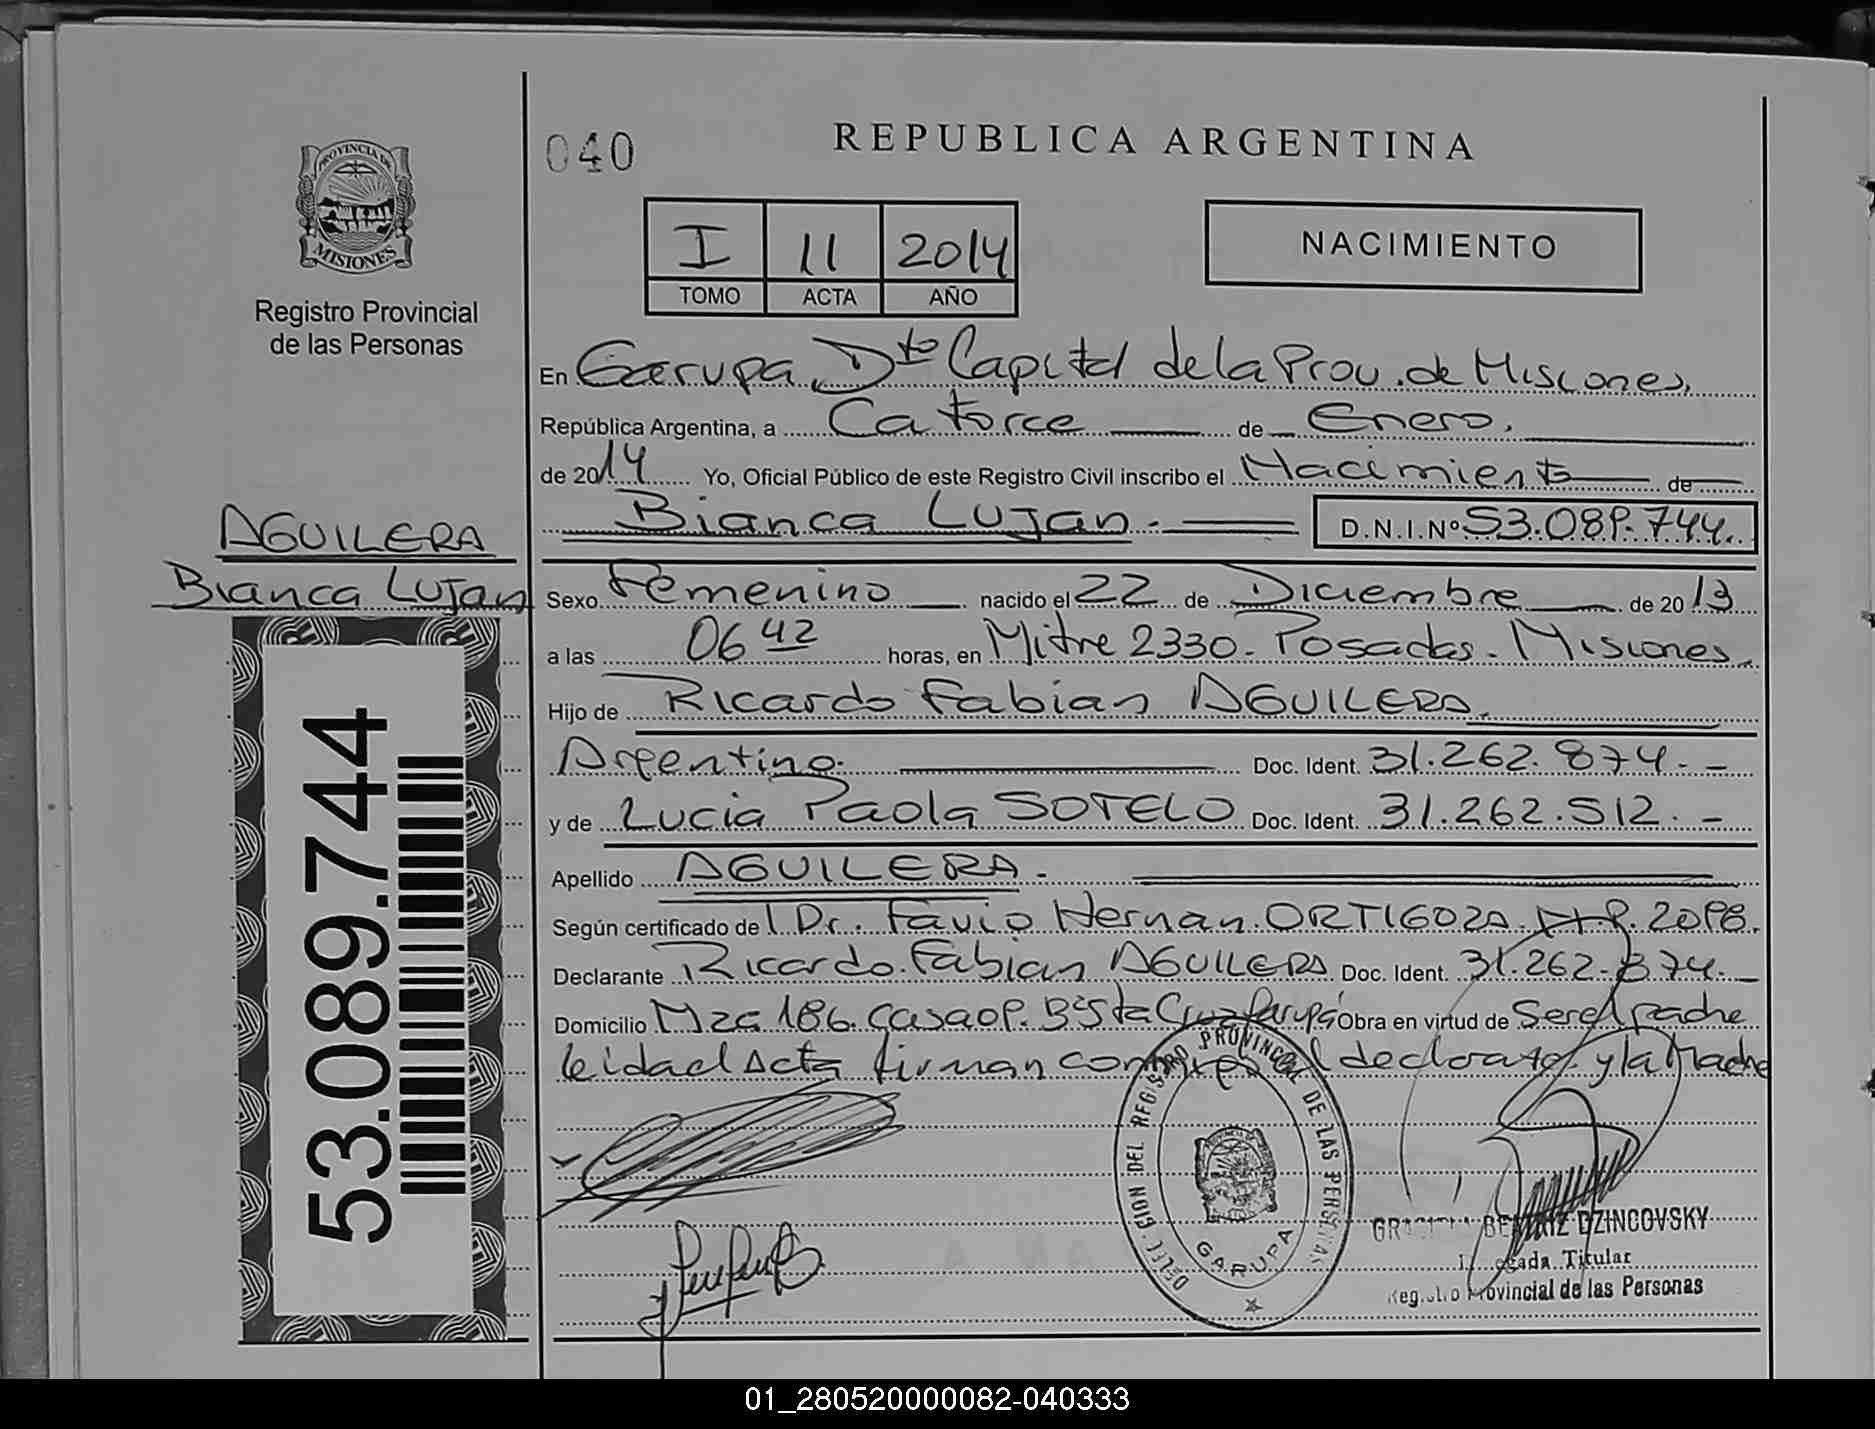 PROVINCIA DE
MISIONES
Registro Provincial
de las Personas
AGUILERA
Bianca Lujan
53.089.744
040
REPUBLICA ARGENTINA
I 11 2014
TOMO ACTA AÑO
NACIMIENTO
En Garupa Dto Capital de la Prov. de Misiones,
República Argentina, a Catorce de Enero,
de 2014 Yo, Oficial Público de este Registro Civil inscribo el Nacimiento de
Bianca Lujan.- D.N.I.Nº 53.089.744.
Sexo Femenino nacido el 22 de Diciembre de 2013
a las 06 42 horas, en Mitre 2330. Posadas. Misiones.
Hijo de Ricardo Fabian AGUILERA.
Argentino. Doc. Ident. 31.262.874.-
y de Lucia Paola SOTELO Doc. Ident. 31.262.512.-
Apellido AGUILERA.
Según certificado del Dr. Favio Hernan ORTIGOZA. M.P. 2098.
Declarante Ricardo Fabian AGUILERA Doc. Ident. 31.262.874.
Domicilio Mza 186. Casa 09. Bº Sta Cruz Garupá Obra en virtud de Ser el padre
leida el Acta firman conmigo el declarante y la Madre
DELEGACION DEL REGISTRO PROVINCIAL DE LAS PERSONAS
GARUPA
BEATRIZ DZINCOVSKY
Titular
Provincial de las Personas
01_280520000082-040333